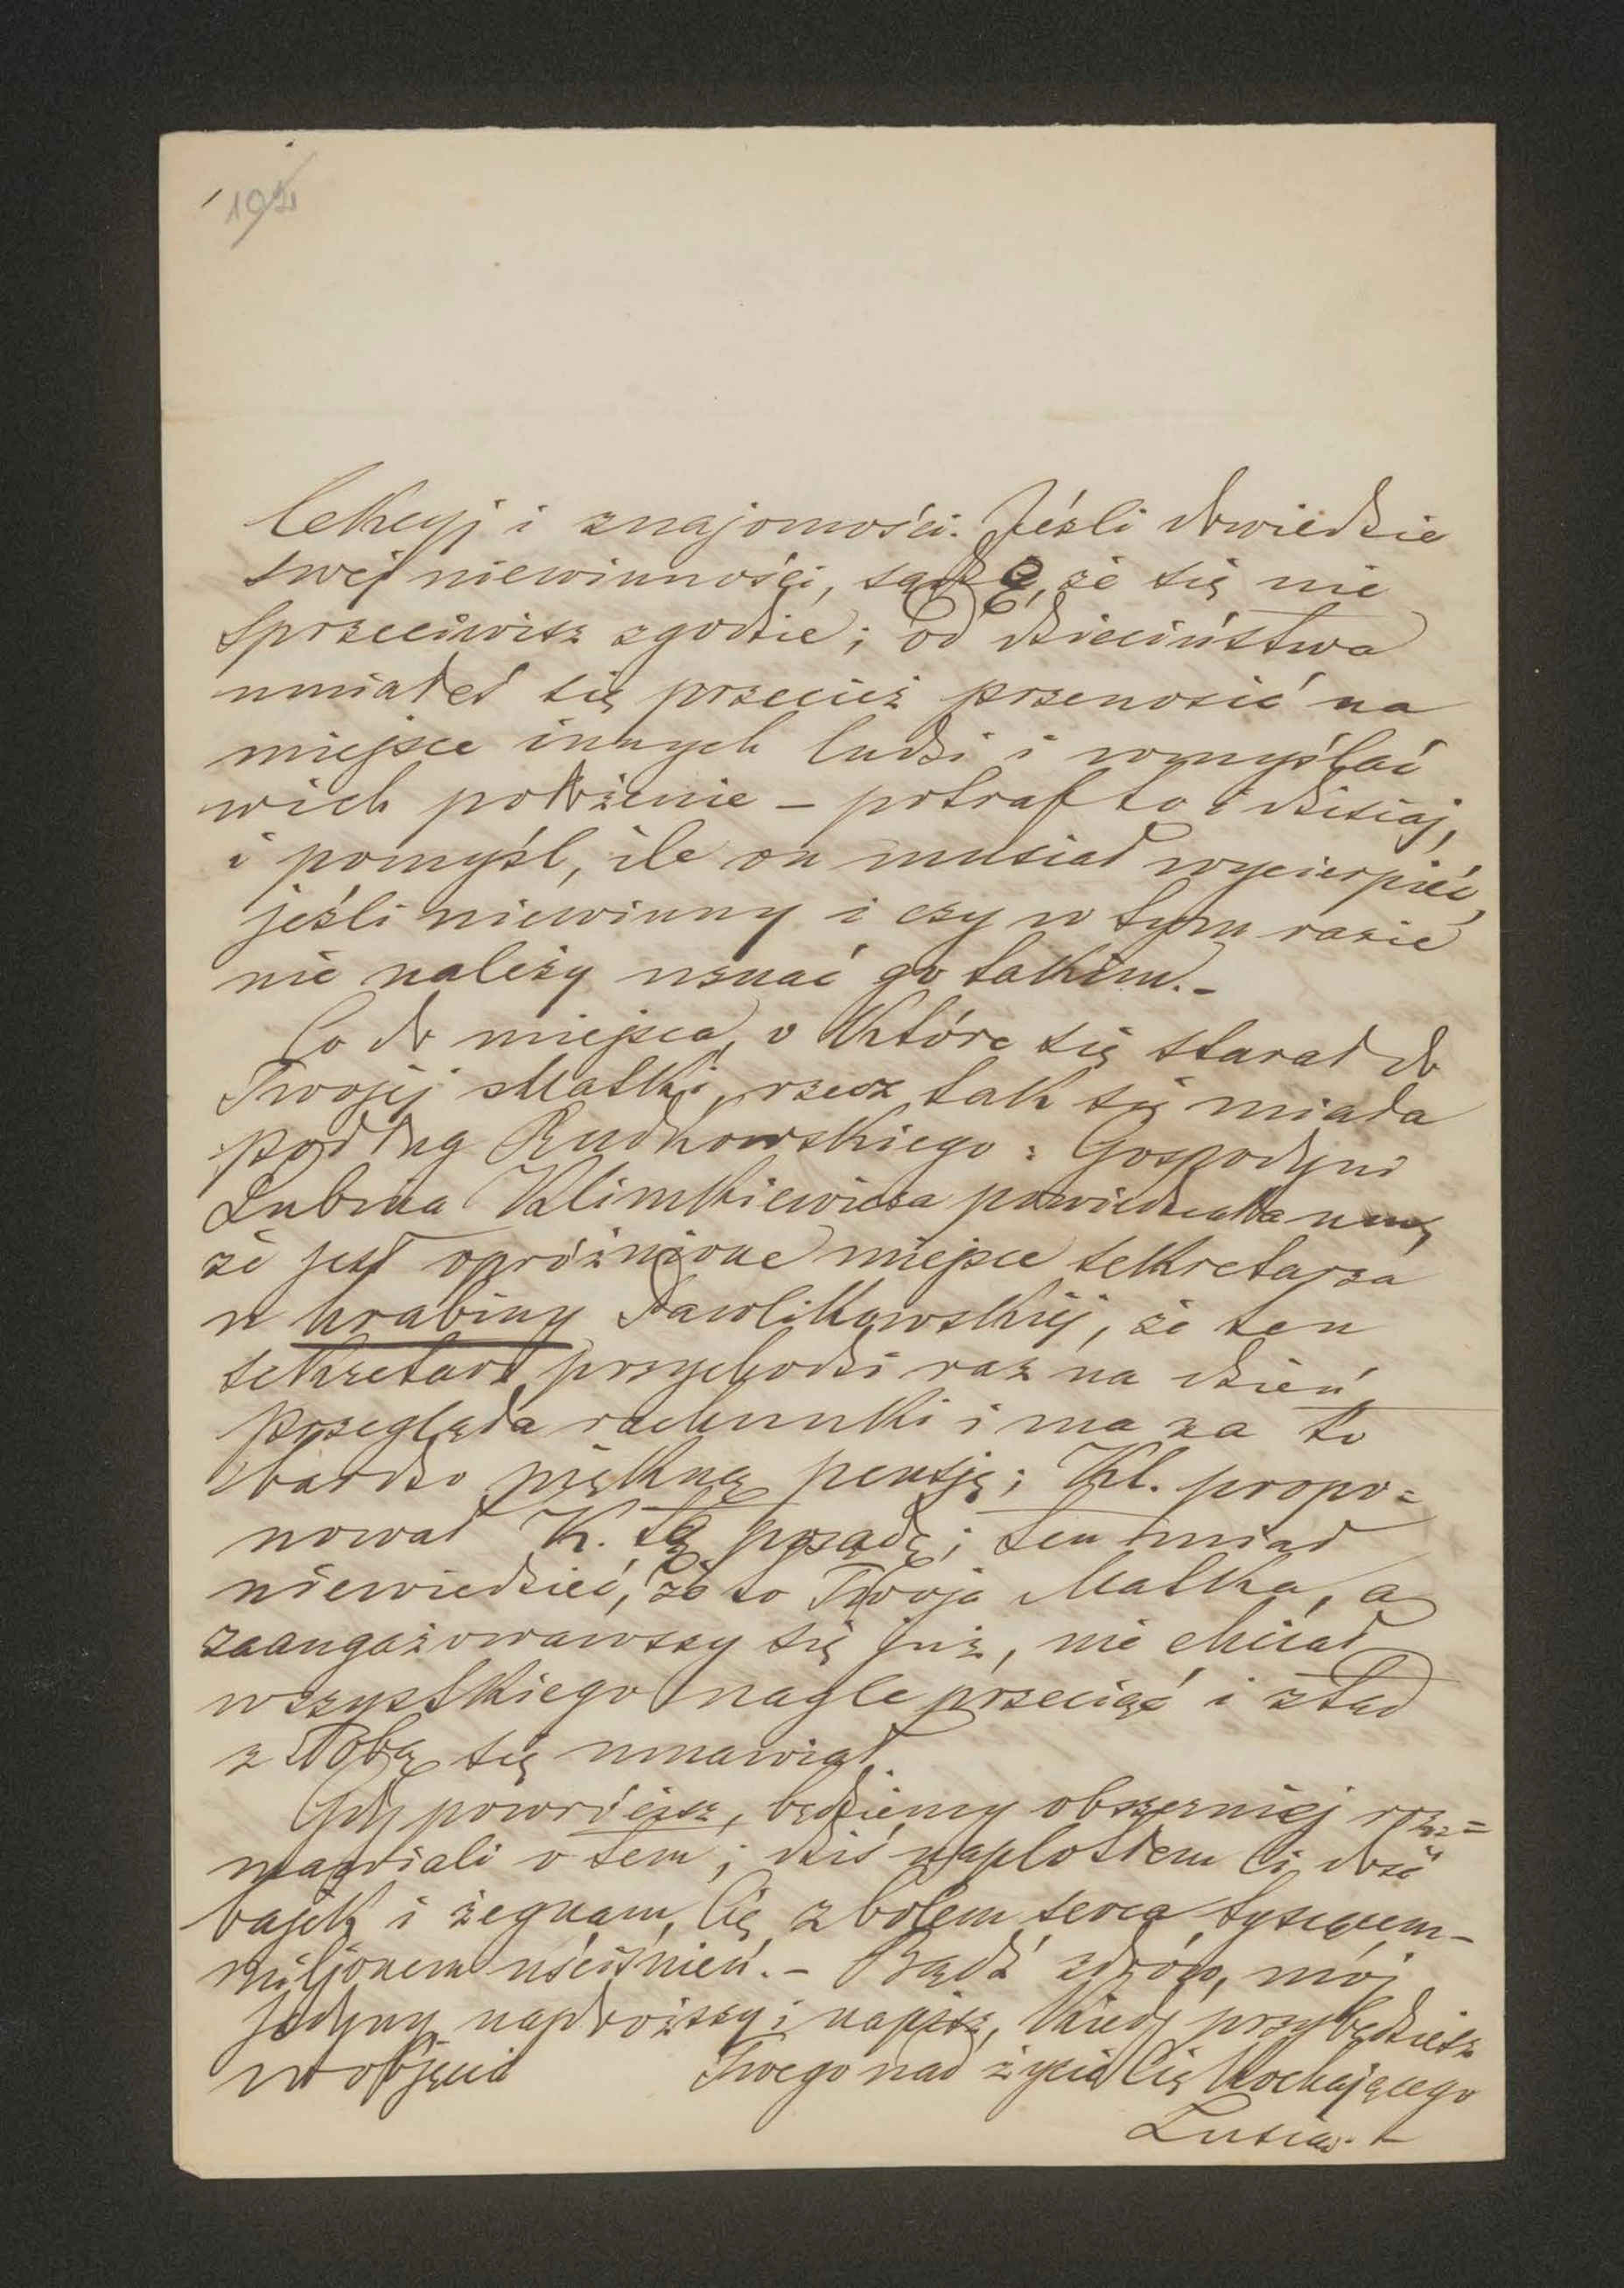 lekcyj i znajomości. Jeśli dowiedzie
swej niewinności, sądzę, że się nie
sprzeciwisz zgodzie; od dzieciństwa
umiałeś się przecież przenosić na
miejsce innych ludzi i wmyślać
w ich położenie – potraf to i dzisiaj,
i pomyśl, ile on musiał wycierpieć,
jeśli niewinny i czy w tym razie
nie należy uznać go takim. –
Co do miejsca, o które się starał do
Twojej Matki, rzecz tak się miała
podług Rudkowskiego: Gospodyni
Lubina Klimkiewicza powiedziała mu,
że jest opróżnione miejsce sekretarza
u hrabiny Pawlikowskiej, że ten
sekretarz przychodzi raz na dzień,
przegląda rachunki i ma za to
bardzo piękną pensję; Kl. propo=
nował K. tę posadę; ten miał
niewiedzieć, że to Twoja Matka, a
zaangażowawszy się już, nie chciał
wszystkiego nagle przeciąć i ztąd
z Tobą się umawiał.
Gdy powrócisz, będziemy obszerniej roz=
mawiali o tem; dziś naplotłem Ci dość
bajek i żegnam Cię z bólem serca tysiącem –
miljonem uściśnień. – Bądź zdrów, mój
jedyny najdroższy i napisz, kiedy przybędziesz
w objęcia Twego nad życie Cię kochającego